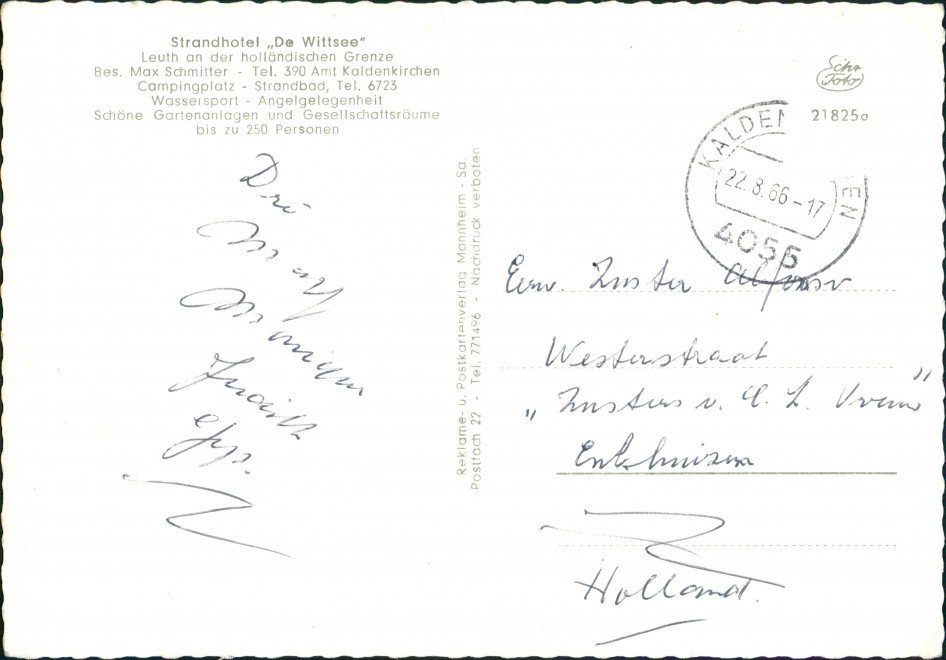 Strandhotel „De Wittsee"
Leuth an der holländischen Grenze
Bes. Max Schmitter - Tel. 390 Amt Kaldenkirchen
Campingplatz - Strandbad, Tel. 6723
Wassersport - Angelgelegenheit
Schöne Gartenanlagen und Gesellschaftsräume
bis zu 250 Personen
Foto
21825a
KALDEN EN
22.8.66-17
4056
Reklame- u. Postkartenverlag Mannheim - Sa.
Postfach 22 - Tel. 771496 - Nachdruck verboten
Eerw. Zuster Alfonso
Westerstraat
„Zusters v. O. L. Vrouw"
Enkhuizen
Holland.